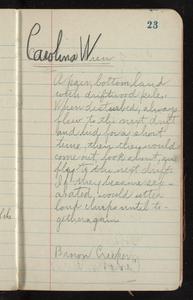 23
Carolina Wren
A pair, bottomland
with driftwood piles.
When disturbed, always
flew to the next drift
and hid for a short
time, then they would
come out, look about, and
fly to the next drift.
If they became sep-
arated, would utter
long chirps until to-
gether again.
Brown Creeper,